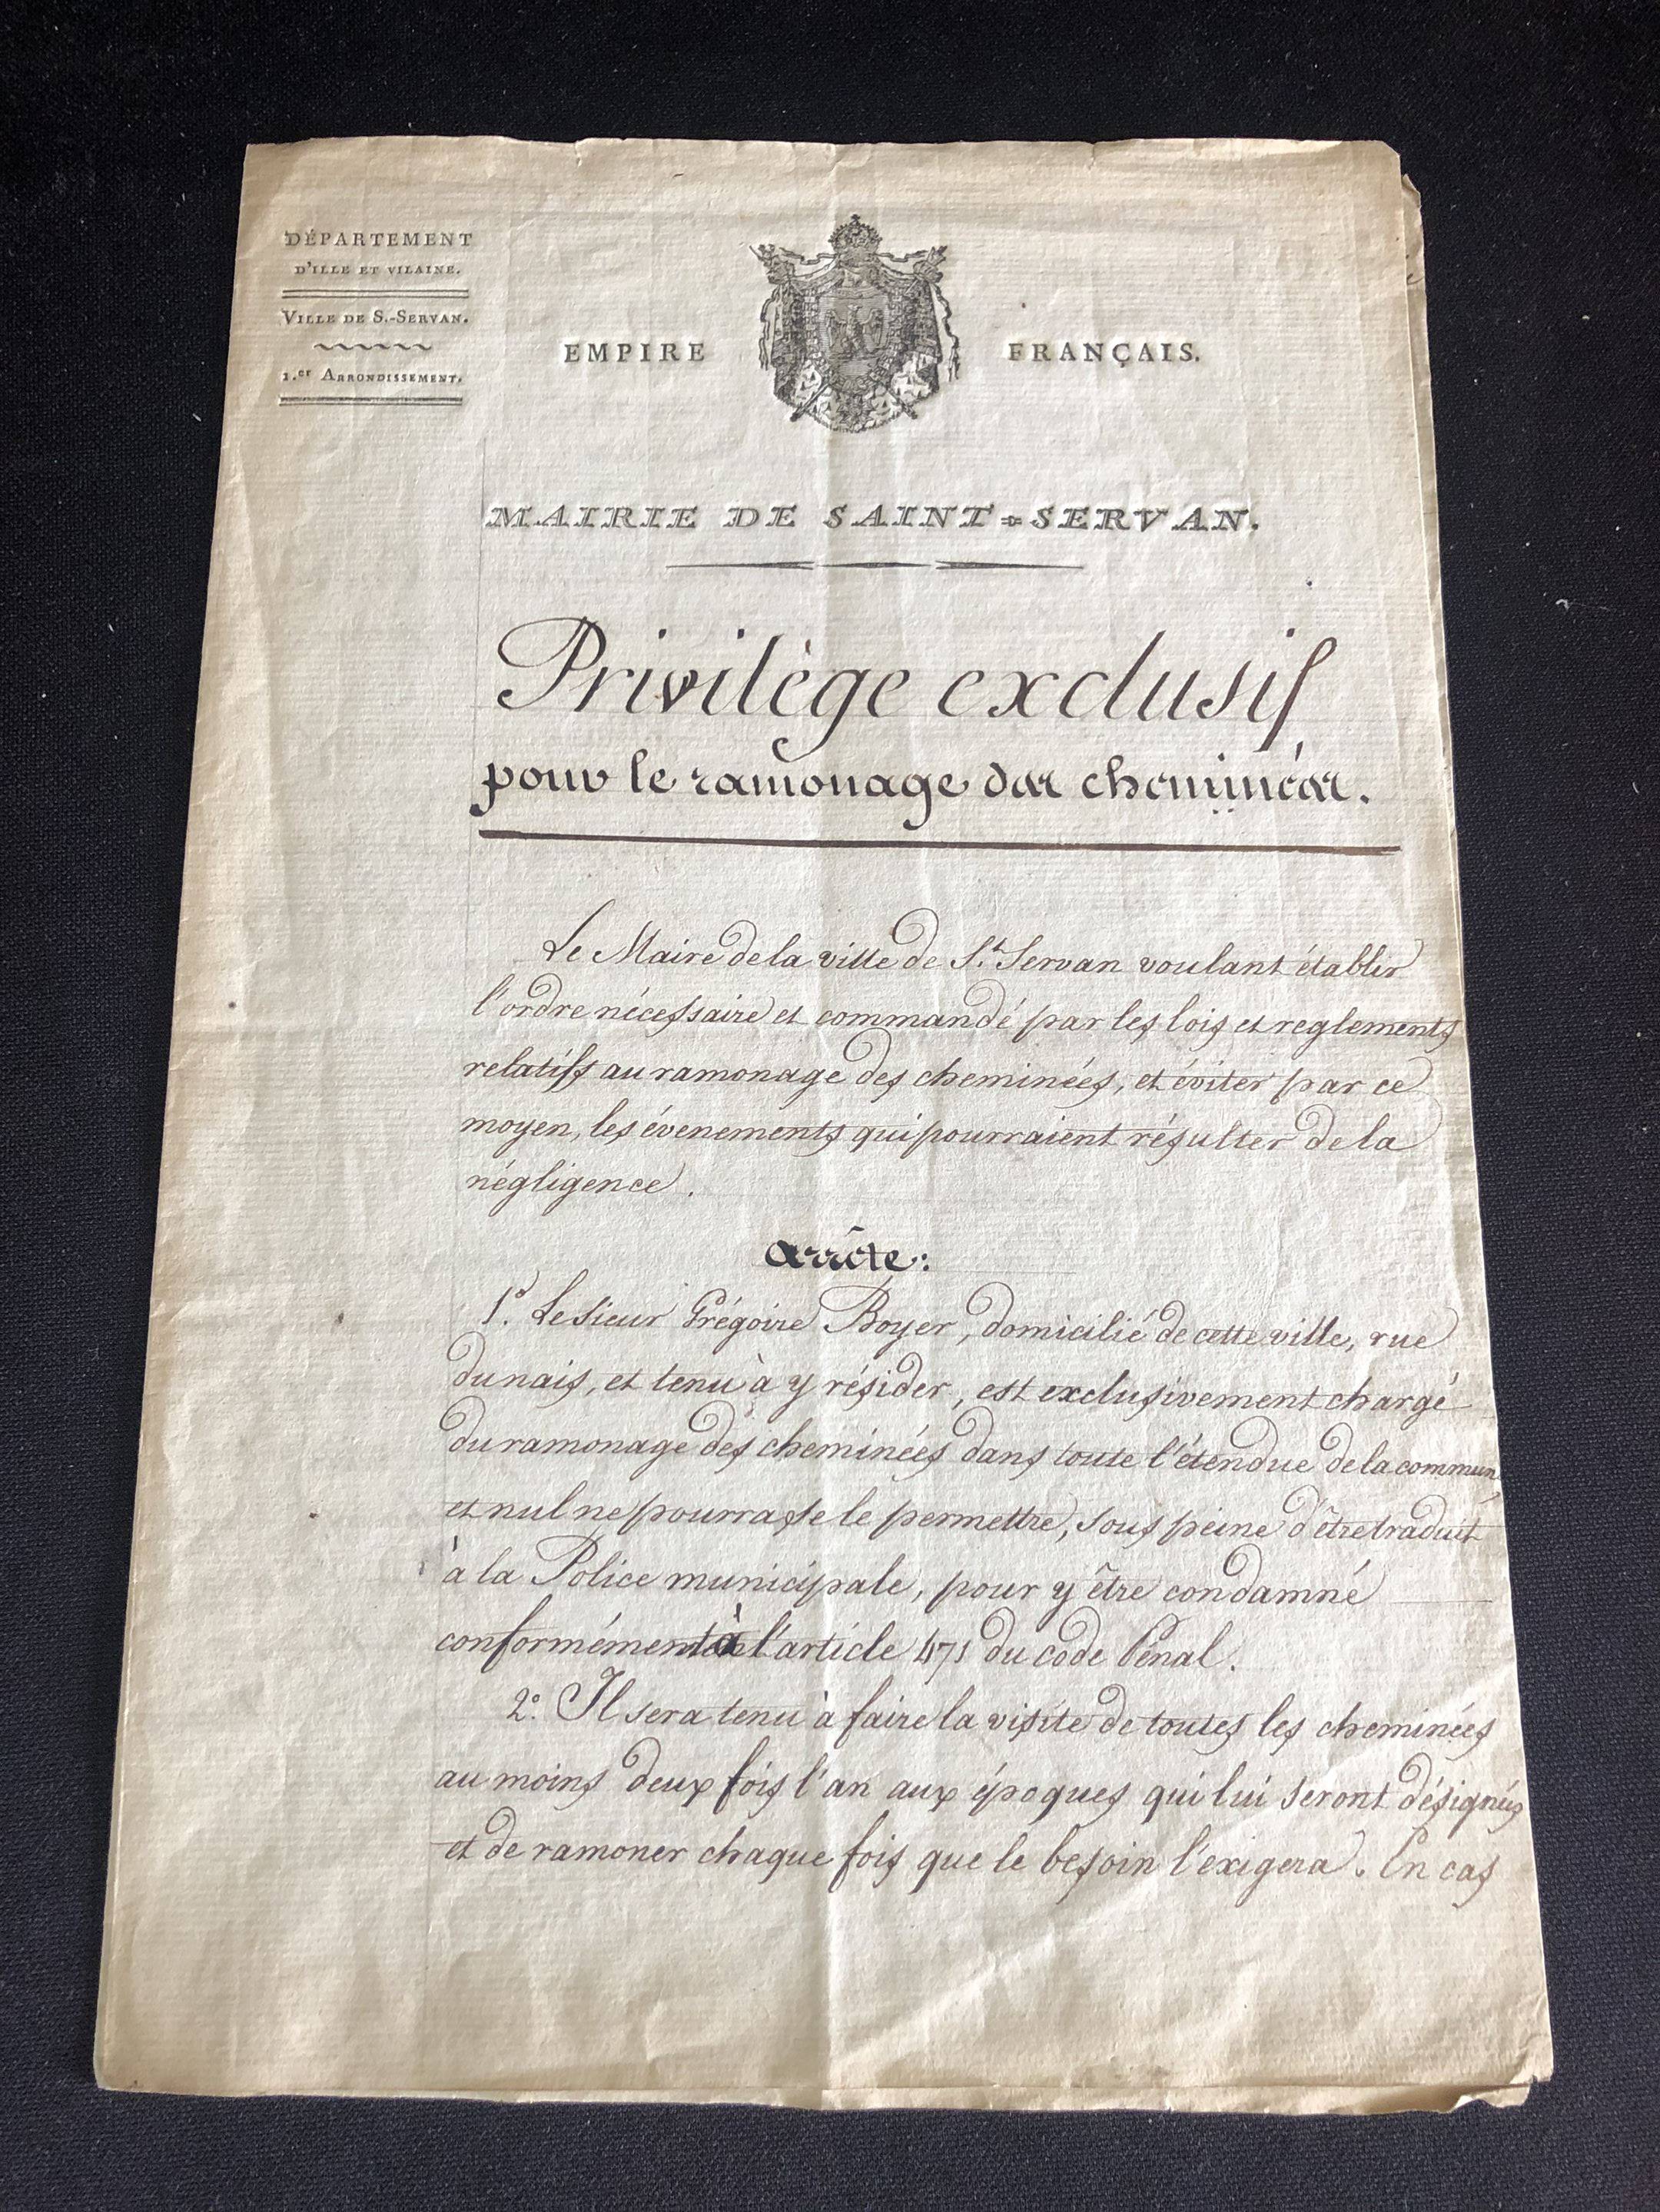 DÉPARTEMENT
D'ILLE ET VILAINE.
VILLE DE S.-SERVAN.
1.er ARRONDISSEMENT.
EMPIRE FRANÇAIS.
MAIRIE DE SAINT=SERVAN.
Privilège exclusif
pour le ramonage des cheminées.
Le Maire de la ville de S.t Servan voulant établir
l'ordre nécessaire et commandé par les lois et reglements
relatifs au ramonage des cheminées, et éviter par ce
moyen, les évenements qui pourraient résulter de la
négligence.
arrête:
1.o Le Sieur Grégoire Boyer, domicilié de cette ville, rue
dunais, et tenu à y résider, est exclusivement chargé
du ramonage des cheminées dans toute l'étendue de la commune,
et nul ne pourra se le permettre, sous peine d'être traduit
à la Police municipale, pour y être condamné
conformément à l'article 471 du code Pénal.
2.o Il sera tenu à faire la visite de toutes les cheminées
au moins deux fois l'an aux époques qui lui seront désignées
et de ramoner chaque fois que le besoin l'exigera. En cas